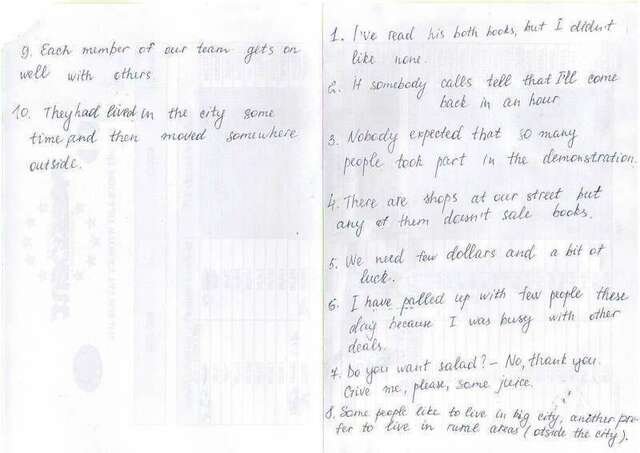 1. I've read his both books, but I didn't
like none.
2. If somebody calls tell that I'll come
back in an hour
3. Nobody expected that so many
people took part in the demonstration.
4. There are shops at our street but
any of them doesn't sale books.
5. We need few dollars and a bit of
luck.
6. I have palled up with few people these
day because I was busy with other
deals.
7. Do you want salad? – No, thank you.
Give me, please, some juice.
8. Some people like to live in big city, another pre-
fer to live in rural areas (otside the city).
9. Each member of our team gets on
well with others
10. They had lived in the city some
time and then moved somewhere
outside.